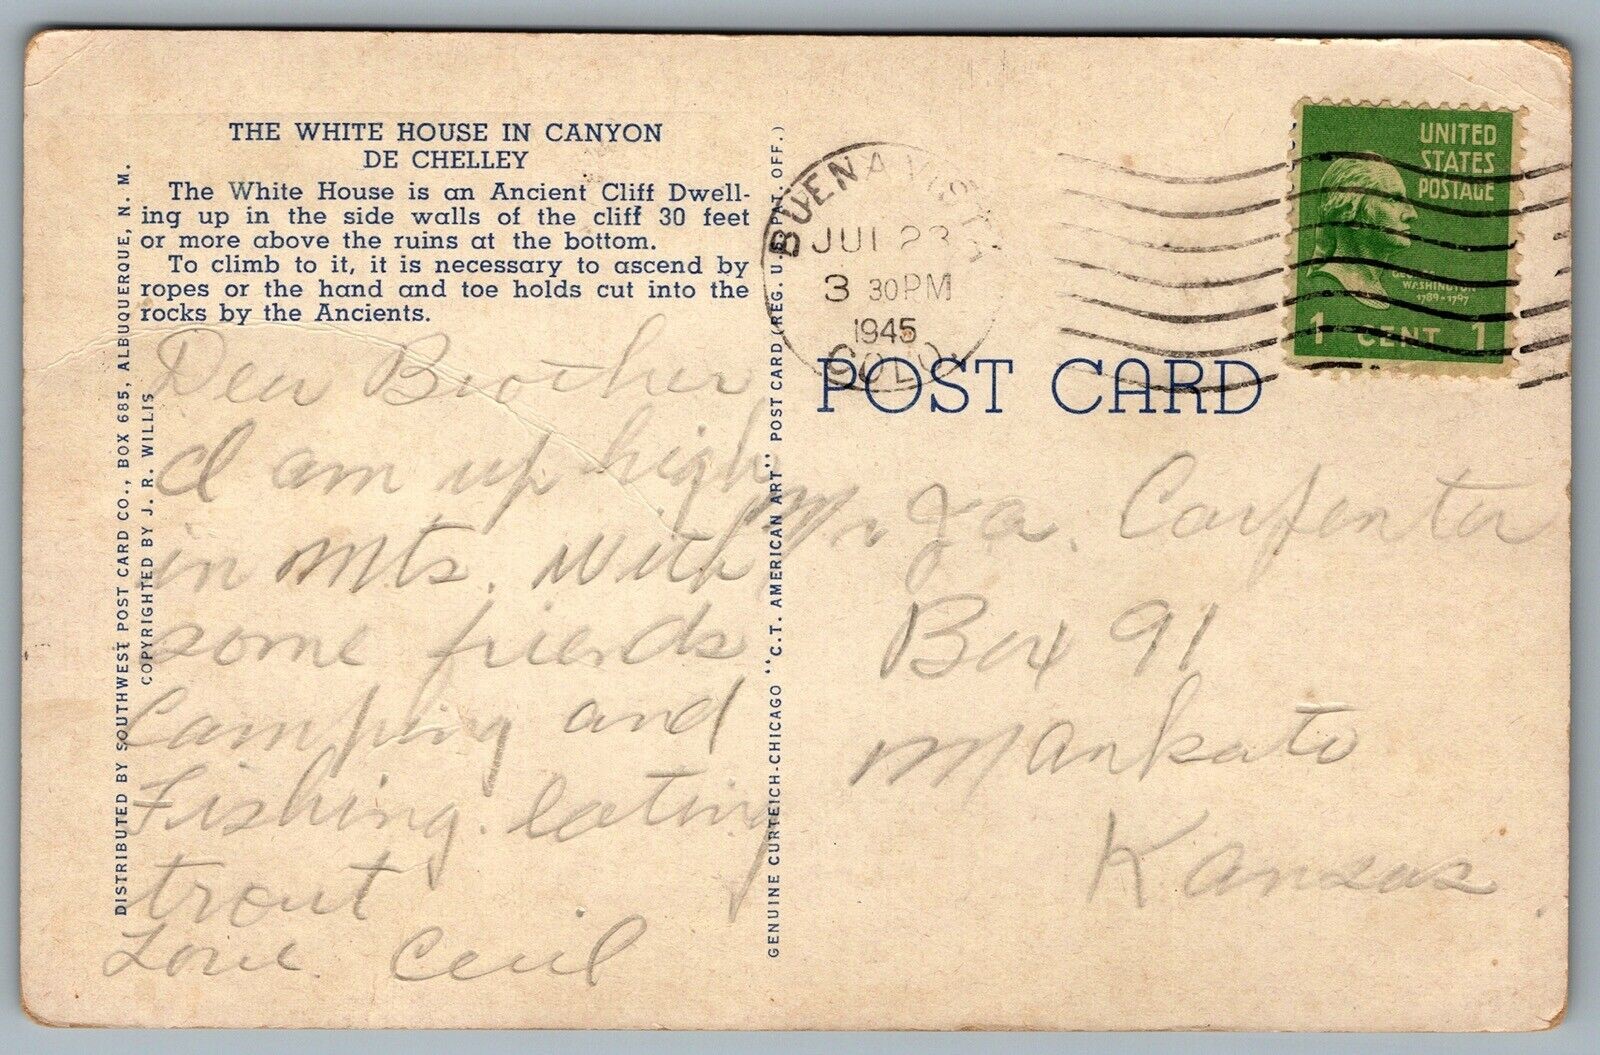 THE WHITE HOUSE IN CANYON
DE CHELLEY
The White House is an Ancient Cliff Dwell-
ing up in the side walls of the cliff 30 feet
or more above the ruins at the bottom.
To climb to it, it is necessary to ascend by
ropes or the hand and toe holds cut into the
rocks by the Ancients.
DISTRIBUTED BY SOUTHWEST POST CARD CO., BOX 685, ALBUQUERQUE, N. M.
COPYRIGHTED BY J. R. WILLIS
Dear Brother
I am up high
in Mts. with
some friends
Camping and
Fishing. eating
trout
Love Cecil
GENUINE CURTEICH-CHICAGO "C.T. AMERICAN ART" POST CARD (REG. U.S. PAT. OFF.)
BUENA VISTA
JUL 23
3 30 PM
1945
COLO.
UNITED
STATES
POSTAGE
GEORGE
WASHINGTON
1789-1797
1 CENT 1
POST CARD
Mr J.a. Carpenter
Box 91
Mankato
Kansas